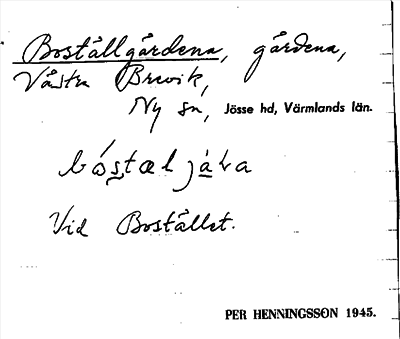 Boställgårdena, gårdena,
Västra Brevik,
Ny sn, Jösse hd, Värmlands län.
Vid Bostället.
PER HENNINGSSON 1945.